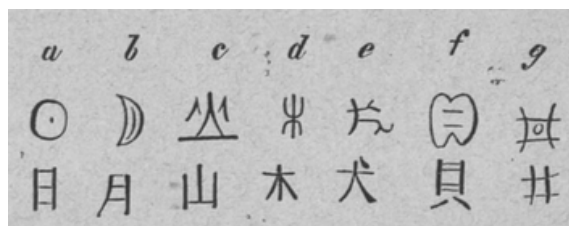 a b c d e f g
日 月 山 木 犬 貝 井